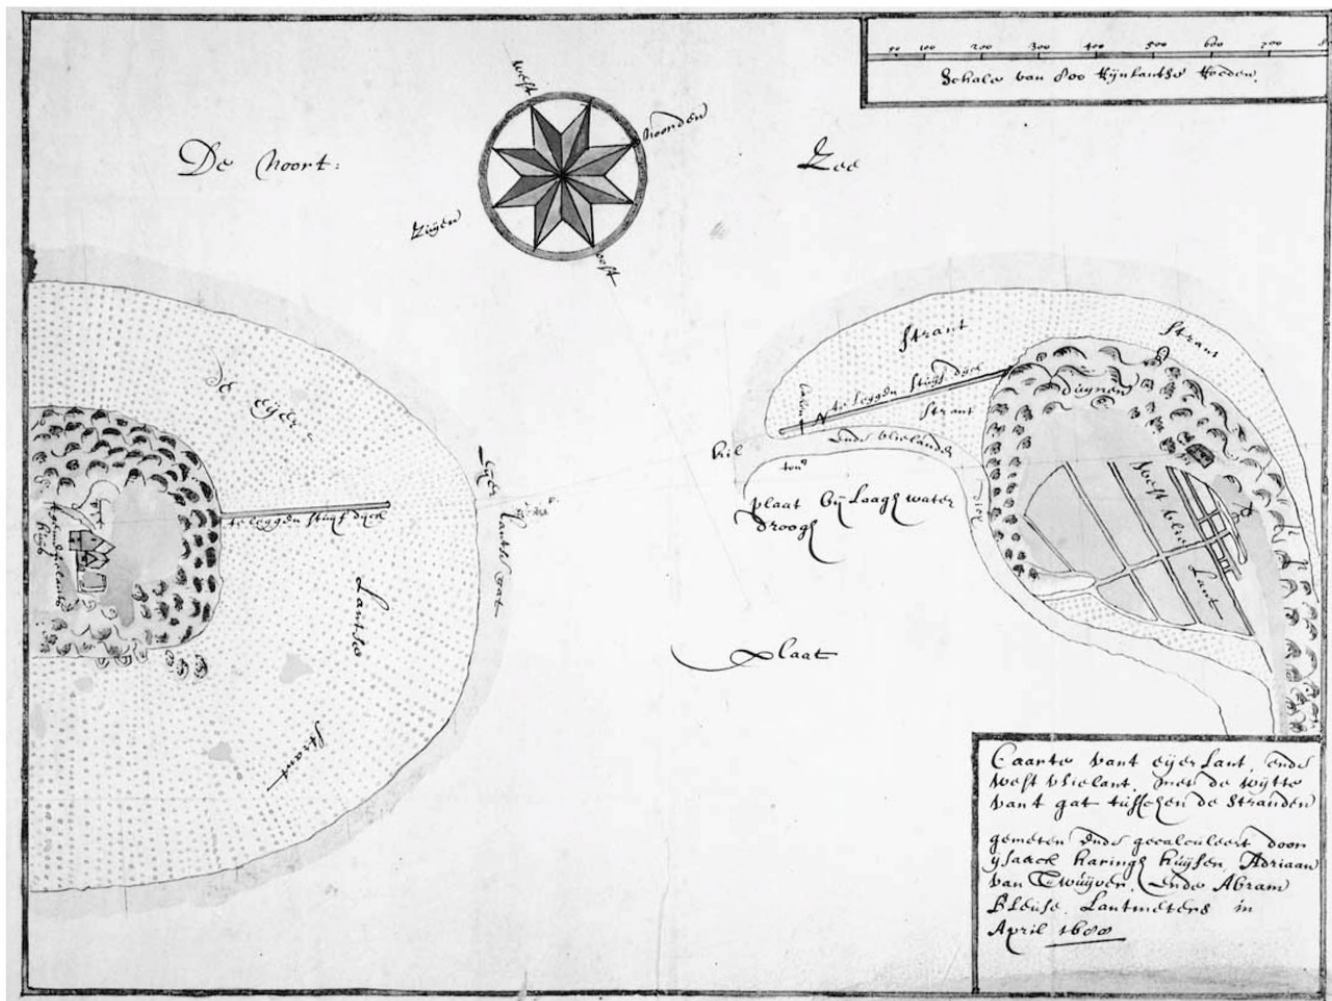 50 100 200 300 400 500 600 700 8
Schale van 800 Rijnlantse Roeden.
West
Noorden
De Noort:
Zee
Zuijen
oost
Strant
Strant
te leggen stuyf dyck
Duynen
Strant
de Eijer
Lantse
Strant
te leggen stuyf dyck
Eijer
Lantse Gat
kil
Ende vlielands
tonn
plaat bij Laagh water
droogh
West vlie
Lant
plaat
Caarte vant eijerlant, ende
west vlielant, met de wijtte
vant gat tusschen de Stranden
gemeten Ende gecalculeert door
ysaack haringh huysen, Adriaan
van Twuijver, Ende Abram
Bleuse Lantmeters in
April 1600